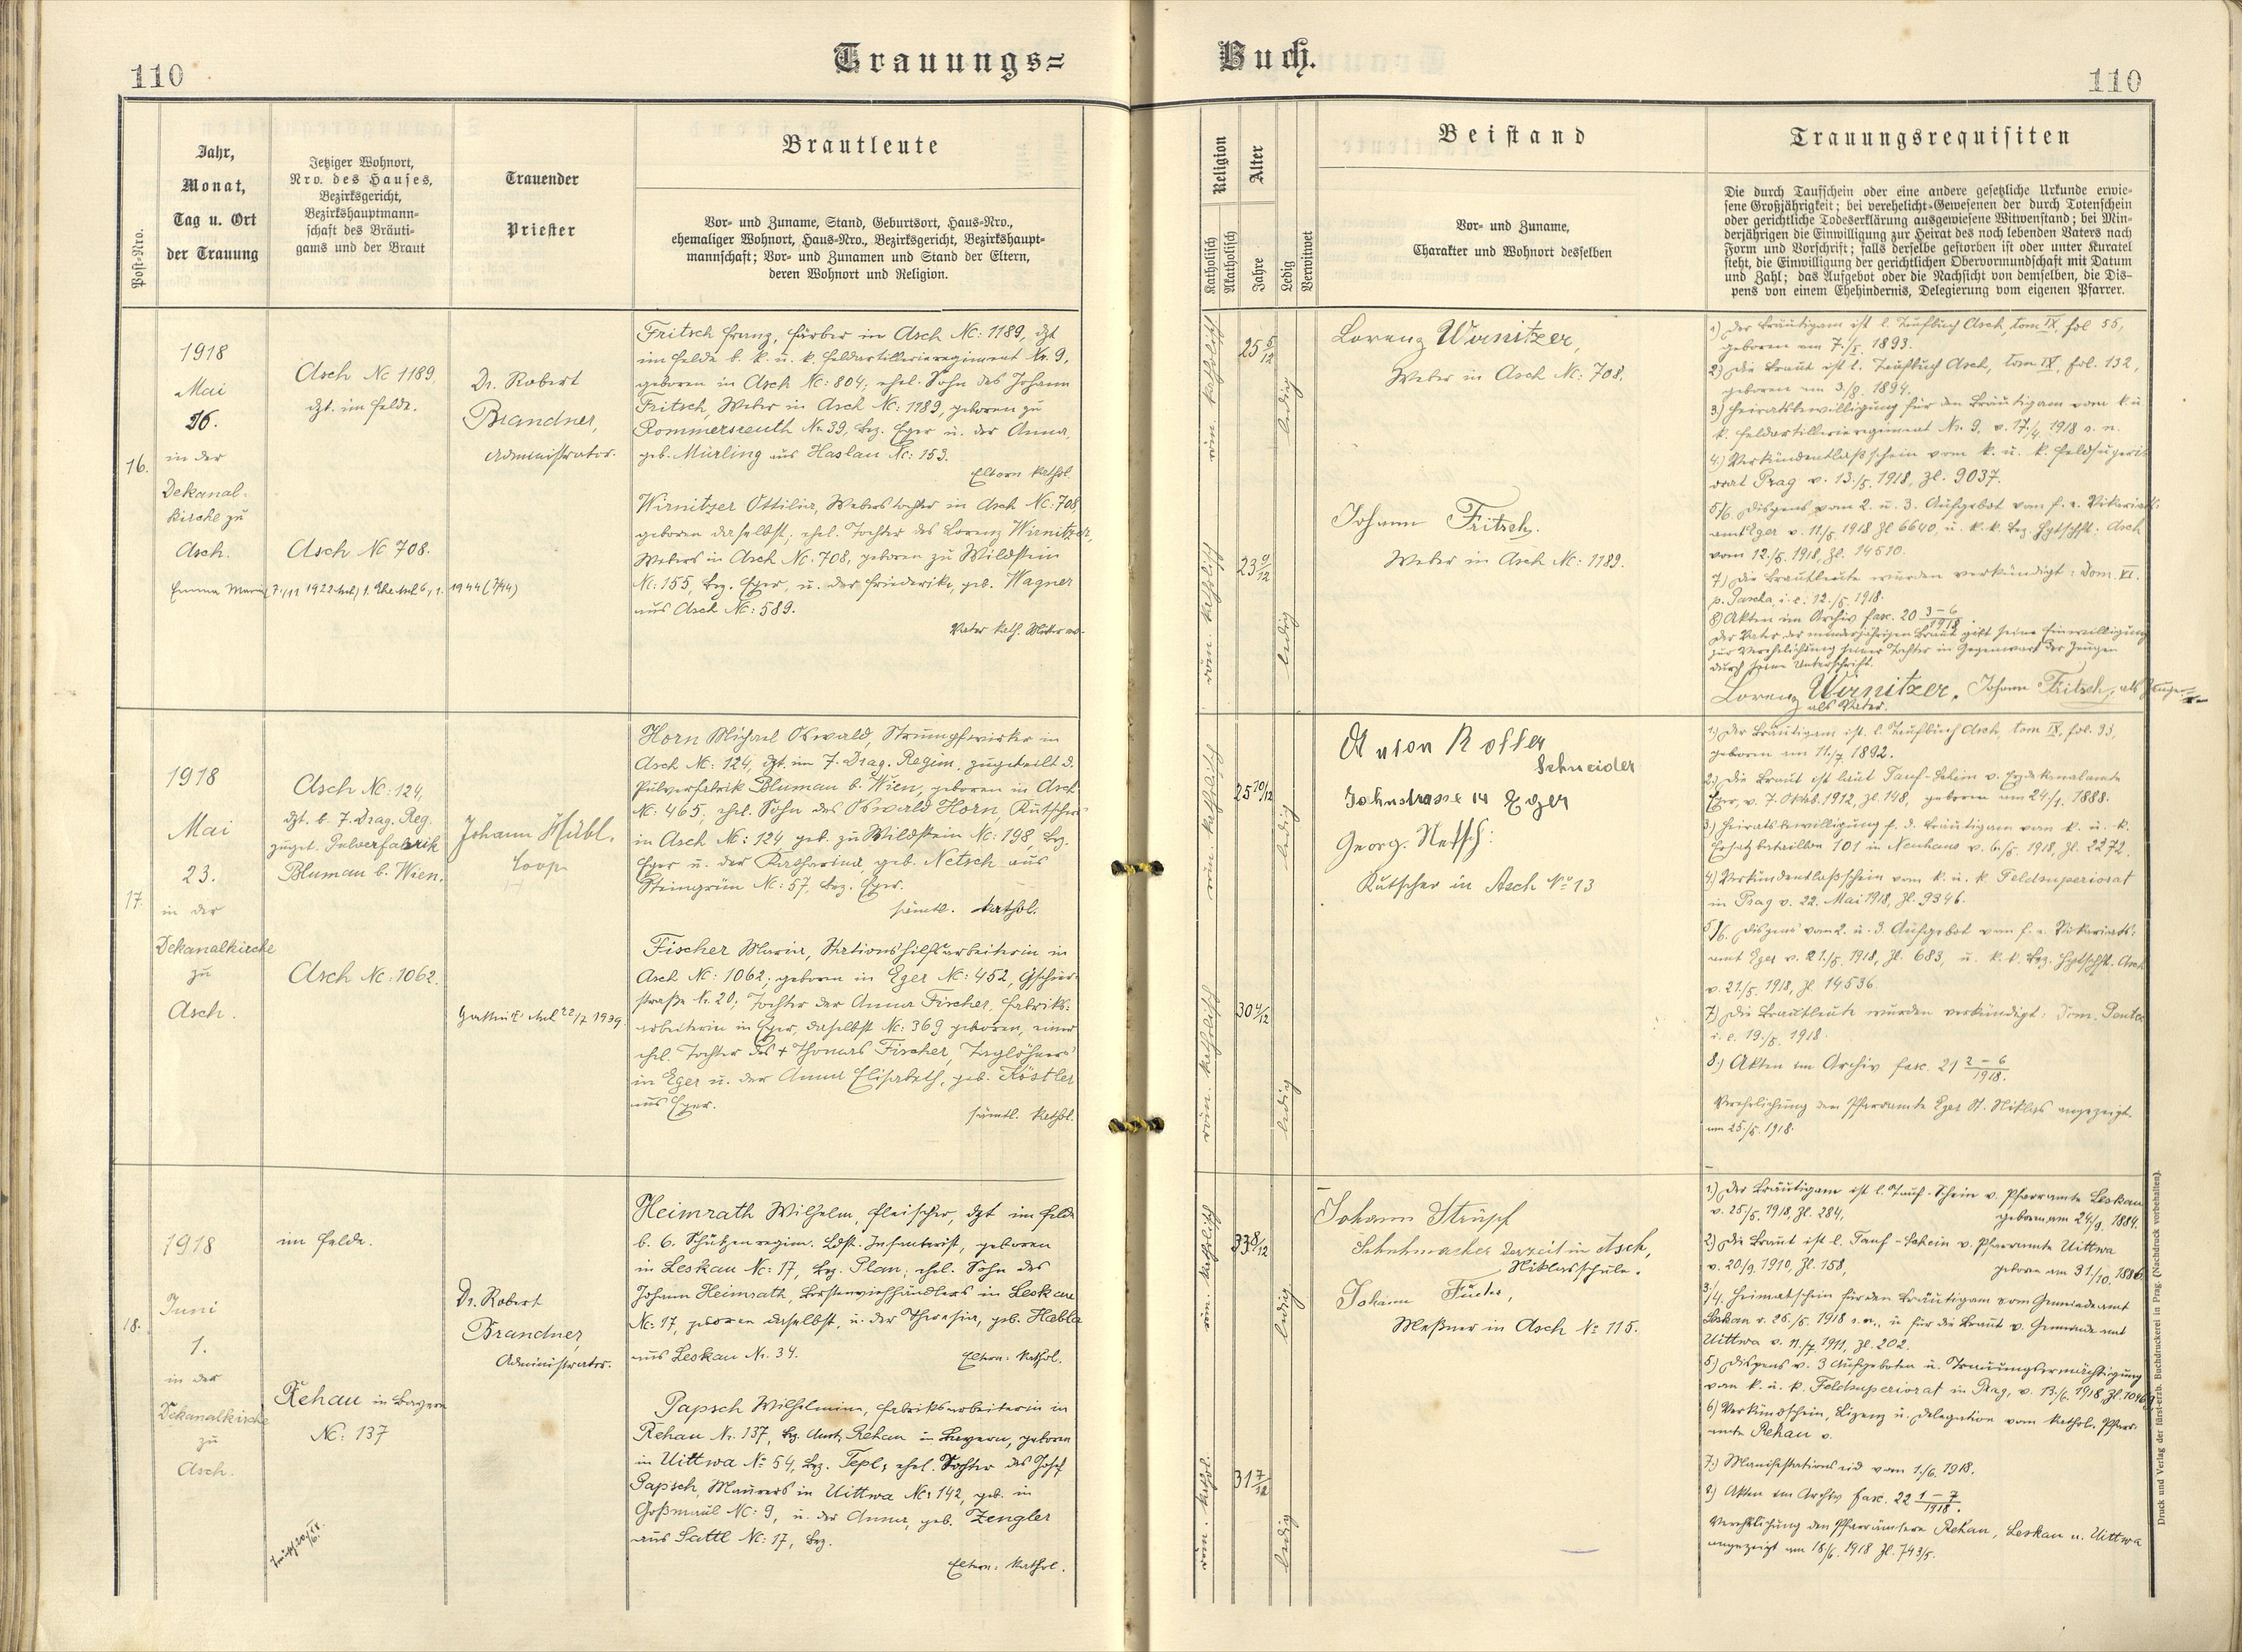 110
Trauungs=
Buch.
110
Post-Nro.
Jahr,
Monat,
Tag u. Ort
der Trauung
Jetziger Wohnort,
Nro. des Hauses,
Bezirksgericht,
Bezirkshauptmann-
schaft des Bräuti-
gams und der Braut
Trauender
Priester
Brautleute
Vor- und Zuname, Stand, Geburtsort, Haus-Nro.,
ehemaliger Wohnort, Haus-Nro., Bezirksgericht, Bezirkshaupt-
mannschaft; Vor- und Zunamen und Stand der Eltern,
deren Wohnort und Religion.
Religion
Katholisch
Akatholisch
Alter
Jahre
Ledig
Verwitwet
Beistand
Vor- und Zuname,
Charakter und Wohnort desselben
Trauungsrequisiten
Die durch Taufschein oder eine andere gesetzliche Urkunde erwie-
sene Großjährigkeit; bei verehelicht-Gewesenen der durch Totenschein
oder gerichtliche Todeserklärung ausgewiesene Witwenstand; bei Min-
derjährigen die Einwilligung zur Heirat des noch lebenden Vaters nach
Form und Vorschrift; falls derselbe gestorben ist oder unter Kuratel
steht, die Einwilligung der gerichtlichen Obervormundschaft mit Datum
und Zahl; das Aufgebot oder die Nachsicht von demselben, die Dis-
pens von einem Ehehindernis, Delegierung vom eigenen Pfarrer.
16.
1918
Mai
26.
in der
Dekanal-
kirche zu
Asch.
Asch Nc 1189.
dzt. im Felde.
Asch Nc 708.
Dr. Robert
Brandner,
Administrator.
Fritsch Franz, Färber in Asch Nc: 1189, dzt
im Felde b. k. u. k. Feldartillerieregiment Nr. 9,
geboren in Asch Nc: 804, ehel. Sohn des Johann
Fritsch, Weber in Asch Nc: 1189, geboren zu
Rommersreuth Nr. 39, Bez. Eger u. der Anna,
geb. Mürling aus Haslau Nc: 153.
Eltern kathol.
Wirnitzer Ottilia, Weberstochter in Asch Nc: 708,
geboren daselbst; ehel. Tochter des Lorenz Wirnitzer,
Webers in Asch Nc. 708, geboren zu Wildstein
Nc: 155, Bez. Eger, u. der Friederike, geb. Wagner
aus Asch Nc: 589.
Vater kath. Mutter
röm. katholisch
25 5/12
ledig
röm. katholisch
23 9/12
ledig
Lorenz Wirnitzer,
Weber in Asch Nc: 708.
Johann Fritsch.
Weber in Asch Nc: 1189.
1) Der Bräutigam ist l. Taufbuch Asch tom IX, fol 55,
geboren am 1893.
2) Die Braut ist l. Taufbuch Asch, tom. IX, fol. 132,
geboren am 3./8. 1894.
3) Heiratsbewilligung für den Bräutigam vom k. u.
k. Feldartillerieregiment Nr. 9, v. 17./4. 1918 s. n.
4.) Verkündentlaßschein vom k. u. k. Feldsuperio-
orat Prag v. 13./5. 1918, Zl. 9037.
5/6. Dispens vom 2. u. 3. Aufgebot vom f. e. Vikariats-
amt Eger v. 11./5. 1918 Zl 6640, u. k. k. Bez. Hptschft. Asch
vom 12./5. 1918, Zl. 14510.
7) Die Brautleute wurden verkündigt: Dom. VI.
p. Pascha, i. e. 12./5. 1918.
8) Akten im Archiv fasc. 20 3-6/1918.
Der Vater der minderjährigen Braut gibt seine Einwilligung
zur Verehelichung seiner Tochter in Gegenwart der Zeugen
durch seine Unterschrift.
Lorenz Wirnitzer, Johann Fritsch, als Zeuge
als Vater.
17.
1918
Mai
23.
in der
Dekanalkirche
zu
Asch.
Asch Nc: 124,
dzt. b. 7. Drag. Reg.
zuget. Pulverfabrik
Blumau b. Wien.
Asch Nc: 1062.
Johann Hübl.
Coop.
Horn Michael Oswald, Strumpfwirker in
Asch Nc: 124, dzt. im 7. Drag. Regim. zugeteilt d.
Pulverfabrik Blumau b. Wien, geboren in Asch
Nc: 465, ehel. Sohn des Oswald Horn, Kutschers
in Asch Nc: 124 geb. zu Wildstein Nc: 198, Bez.
Eger u. der Katharina, geb. Netsch aus
Steingrün Nc: 57, Bez. Eger.
sämtl. kathol.
Fischer Maria, Stationshilfsarbeiterin in
Asch Nc: 1062; geboren in Eger Nc: 452,
straße Nr. 20; Tochter der Anna Fischer, Fabriks-
arbeiterin in Eger, daselbst Nc: 369 geboren, einer
ehel. Tochter des + Thomas Fischer, Taglöhners
in Eger u. der Anna Elisabeth, geb. Köstler
aus Eger.
sämtl. kathol.
röm. katholisch
25 10/12
ledig
röm. katholisch
30 4/12
ledig
Anton Roller
Schneider
Jahnstrasse 14 Eger
Georg. Netsch:
Kutscher in Asch No 13
1.) Der Bräutigam ist l. Taufbuch Asch, tom IX, fol. 33,
geboren am 11./7. 1892.
2.) Die Braut ist laut Tauf-Schein v. Erzdekanalamte
Eger, v. 7. Okt. 1912, Zl. 148, geboren am 24/1. 1888.
3.) Heiratsbewilligung f. d. Bräutigam vom k. u. k.
Ersatzbataillon 101 in Neuhaus v. 6./5. 1918, Zl. 2272.
4.) Verkündentlaßschein vom k. u. k. Feldsuperiorat
in Prag v. 22. Mai 1918, Zl. 9346.
5/6. Dispens vom 2. u. 3. Aufgebot vom f. e. Vikariats-
amt Eger v. 21./5. 1918, Zl. 683, u. k. k. Bez. Hptschft. Asch
v. 21./5. 1918, Zl 14536.
7.) Die Brautleute wurden verkündigt: Dom. Pentec
i. e. 19./5. 1918.
8.) Akten im Archiv fasc. 21 2-6/1918.
Verehelichung dem Pfarramte Eger St. Niklas angezeigt
am 25./5. 1918.
18.
1918
Juni
1.
in der
Dekanalkirche
zu
Asch.
im Felde.
Rehau in Bayern
Nc: 137
Dr. Robert
Brandner,
Administrator.
Heimrath Wilhelm, Fleischer, dzt im Felde
b. 6. Schützenregim. Ldst. Infanterist, geboren
in Leskau Nc: 17, Bez. Plan; ehel. Sohn des
Johann Heimrath, Borstenviehhändlers in Leskau
Nc: 17, geboren daselbst, u. der Theresia, geb. Habla
aus Leskau Nr. 34.
Eltern: kathol.
Papsch Wilhelmine, Fabriksarbeiterin in
Rehau Nr. 137, Bez. Amt, Rehau in Bayern, geboren
in Uittwa No 54, Bez. Tepl, ehel. Tochter des Josef
Papsch, Maurers in Uittwa Nc: 142, geb. in
Goßmaul Nc: 9, u. der Anna, geb. Zengler
aus Sattl Nc: 17, Bez.
Eltern: kathol.
röm. katholisch
33 8/12
ledig
röm. kathol.
31 7/12
ledig
Johann Strüpf
Schuhmacher derzeit in Asch,
Niklasschule.
Johann
Meßner in Asch No 115.
1) Der Bräutigam ist l. Tauf-Schein v. Pfarramte Leskau
v. 25/5. 1918, Zl. 284, geboren am 24/9. 1884.
2) Die Braut ist l. Tauf-Schein v. Pfarramte Uittwa
v. 20/9. 1910, Zl. 158, geboren am 31/10. 1886.
3/4. Heimatschein für den Bräutigam vom Gemeindeamt
Leskau v. 26./5. 1918 s. n., u. für die Braut v. Gemeindeamt
Uittwa v. 11./7. 1911, Zl. 202.
5.) Dispens v. 3 Aufgeboten u. Trauungsermächtigung
vom k. u. k. Feldsuperiorat in Prag, v.
6) Verkündschein, Lizenz u. Delegation vom kathol. Pfarr-
amte Rehau v.
7.) Manifestationseid vom 1./6. 1918.
8.) Akten im Archiv fasc. 22 1-7/1918.
Verehelichung den Pfarrämtern Rehau, Leskau u. Uittwa
angezeigt am 18./6. 1918 Zl. 743/5.
Druck und Verlag der fürst-erzb. Buchdruckerei in Prag. (Nachdruck vorbehalten).